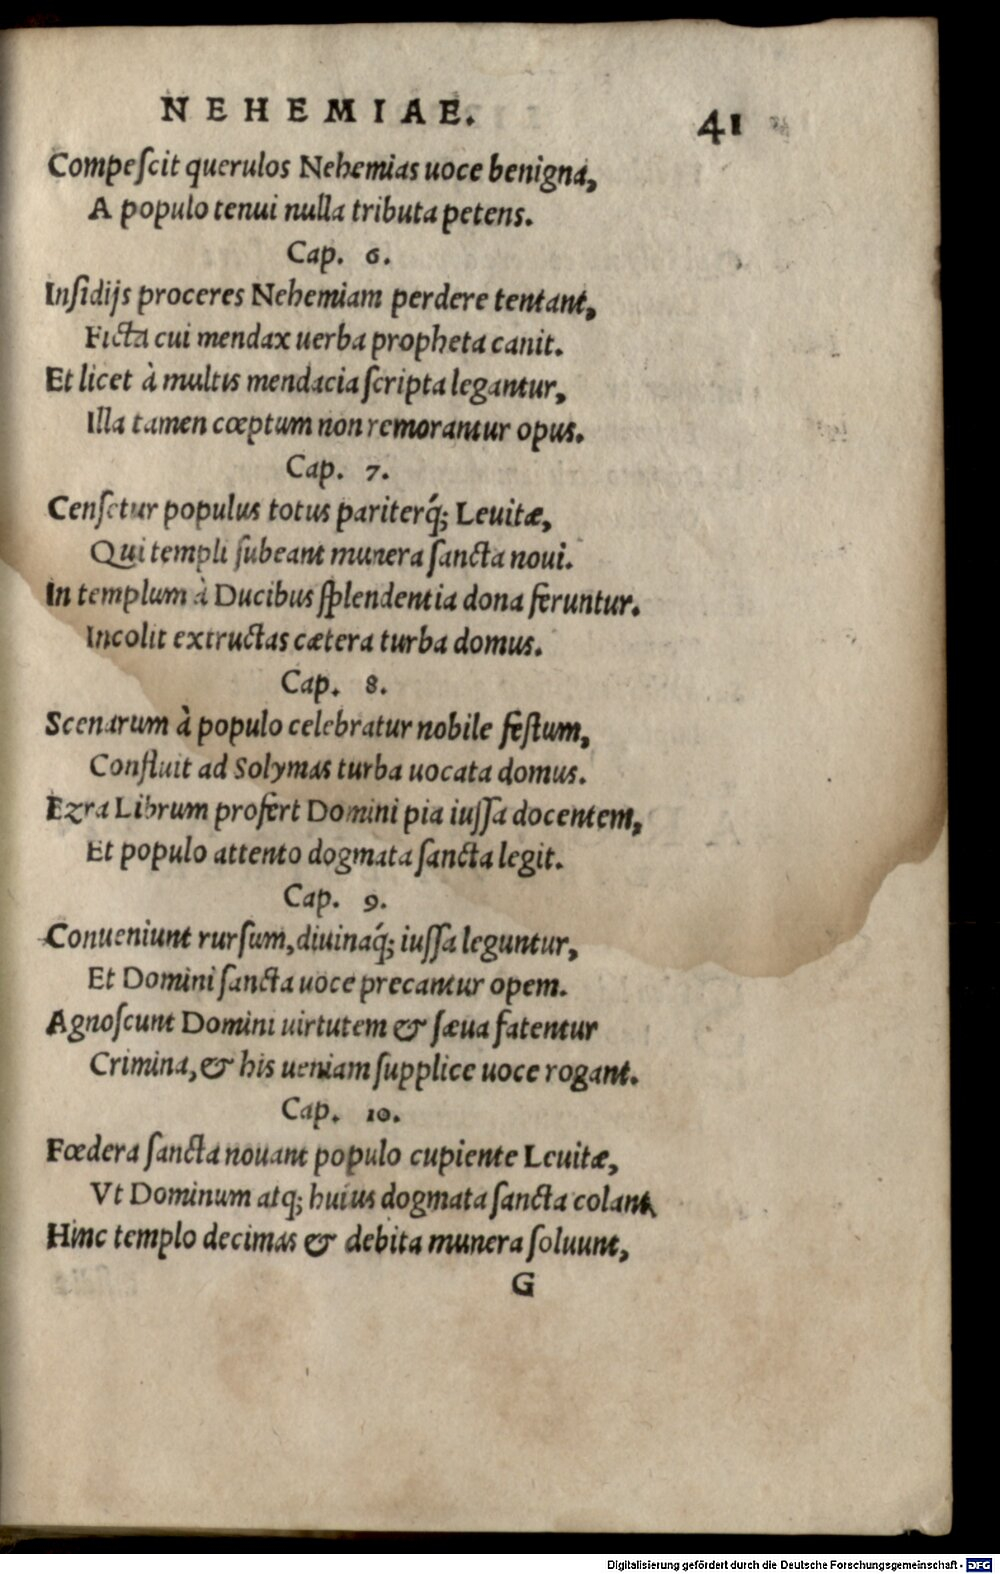 NEHEMIAE. 41
Compeſcit querulos Nehemias uoce benigna,
A populo tenui nulla tributa petens.
Cap. 6.
Inſidijs proceres Nehemiam perdere tentant,
Ficta cui mendax uerba propheta canit.
Et licet à multis mendacia ſcripta legantur,
Illa tamen cœptum non remorantur opus.
Cap. 7.
Cenſetur populus totus pariterq́; Leuitæ,
Qui templi ſubeant munera ſancta noui.
In templum à Ducibus ſplendentia dona feruntur.
Incolit extructas cætera turba domus.
Cap. 8.
Scenarum à populo celebratur nobile feſtum,
Confluit ad Solymas turba uocata domus.
Ezra Librum profert Domini pia iuſſa docentem,
Et populo attento dogmata ſancta legit.
Cap. 9.
Conueniunt rurſum, diuinaq́; iuſſa leguntur,
Et Domini ſancta uoce precantur opem.
Agnoſcunt Domini uirtutem & ſæua fatentur
Crimina, & his ueniam ſupplice uoce rogant.
Cap. 10.
Fœdera ſancta nouant populo cupiente Leuitæ,
Vt Dominum atq; huius dogmata ſancta colant.
Hinc templo decimas & debita munera ſoluunt,
G
Digitalisierung gefördert durch die Deutsche Forschungsgemeinschaft - DFG